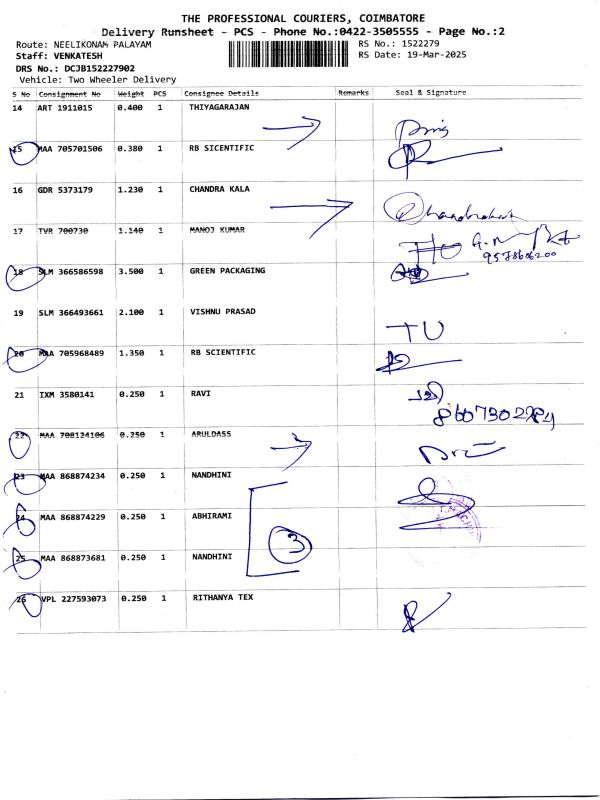 THE PROFESSIONAL COURIERS, COIMBATORE
Delivery Runsheet - PCS - Phone No.:0422-3505555 - Page No.:2
Route: NEELIKONAM PALAYAM RS No.: 1522279
Staff: VENKATESH RS Date: 19-Mar-2025
DRS No.: DCJB152227902
Vehicle: Two Wheeler Delivery
S No Consignment No Weight PCS Consignee Details Remarks Seal & Signature
14 ART 1911015 0.400 1 THIYAGARAJAN
15 MAA 705701506 0.380 1 RB SICENTIFIC
16 GDR 5373179 1.230 1 CHANDRA KALA
17 TVR 700730 1.140 1 MANOJ KUMAR
9578606200
18 SLM 366586598 3.500 1 GREEN PACKAGING
19 SLM 366493661 2.100 1 VISHNU PRASAD
TU
20 MAA 705968489 1.350 1 RB SCIENTIFIC
21 IXM 3580141 0.250 1 RAVI
22 MAA 708124106 0.250 1 ARULDASS
23 MAA 868874234 0.250 1 NANDHINI
24 MAA 868874229 0.250 1 ABHIRAMI
3
25 MAA 868873681 0.250 1 NANDHINI
26 VPL 227593073 0.250 1 RITHANYA TEX